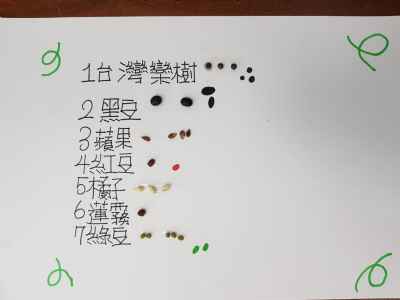 1台灣欒樹
2黑豆
3蘋果
4紅豆
5橘子
6蓮霧
7綠豆